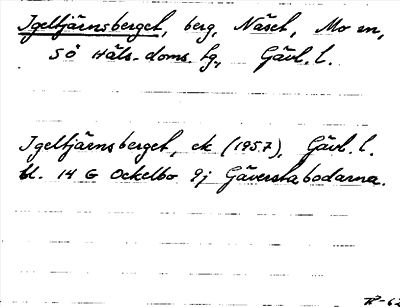 Igeltjärnsberget, berg, Näset, Mo sn,
SÖ Häls. doms. fg., Gävl. l.
Igeltjärnsberget, ek (1957), Gävl. l.
bl. 14 G Ockelbo 9j Gäverstabodarna.